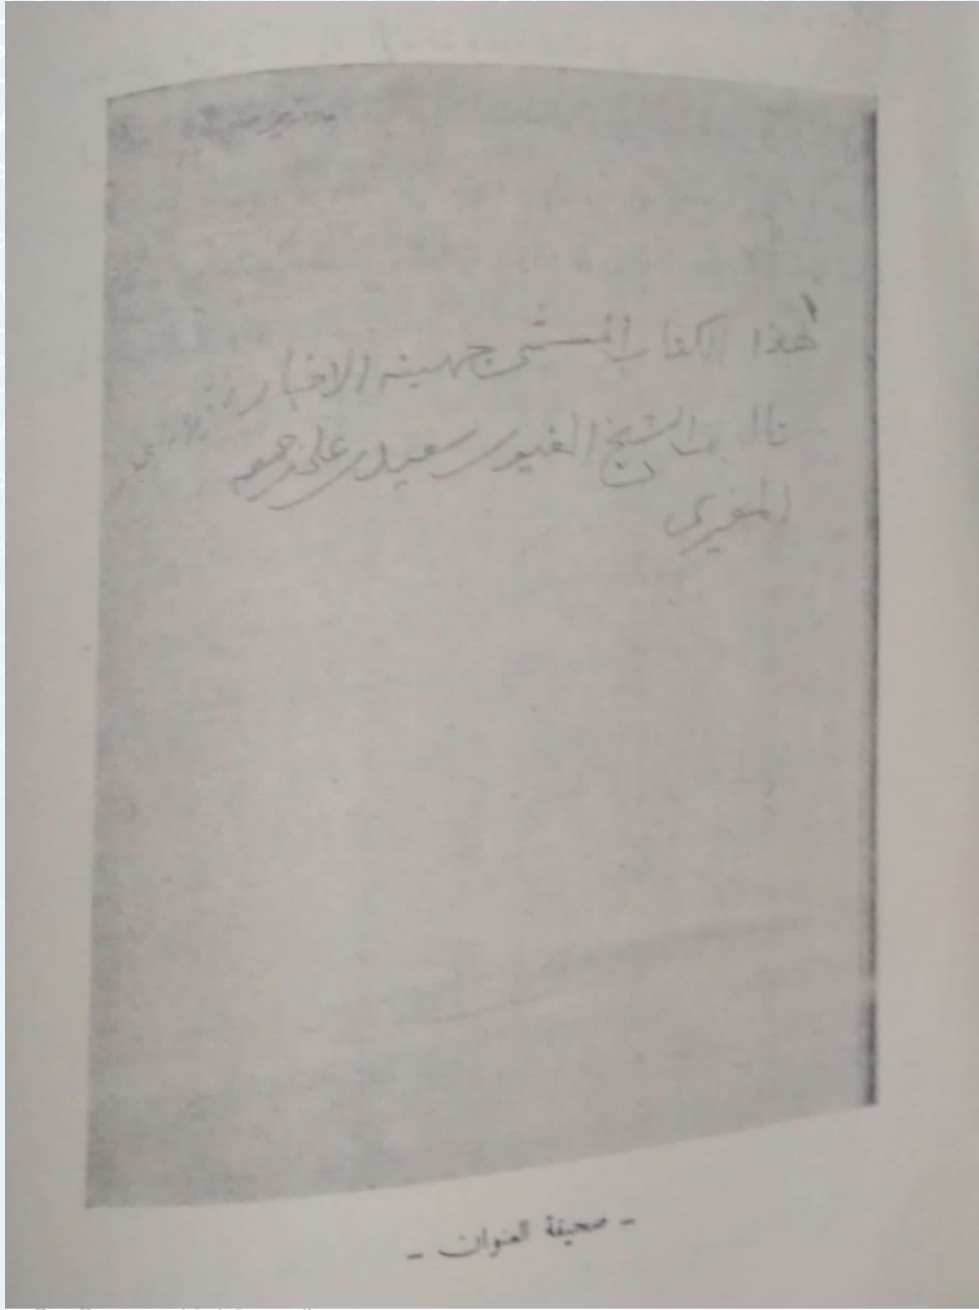 هذا الكتاب المسمى جهينه الاخبار
تاليف الشيخ الفقير سعيد بن علي بن جمعه
المغيري
- صحيفة العنوان -